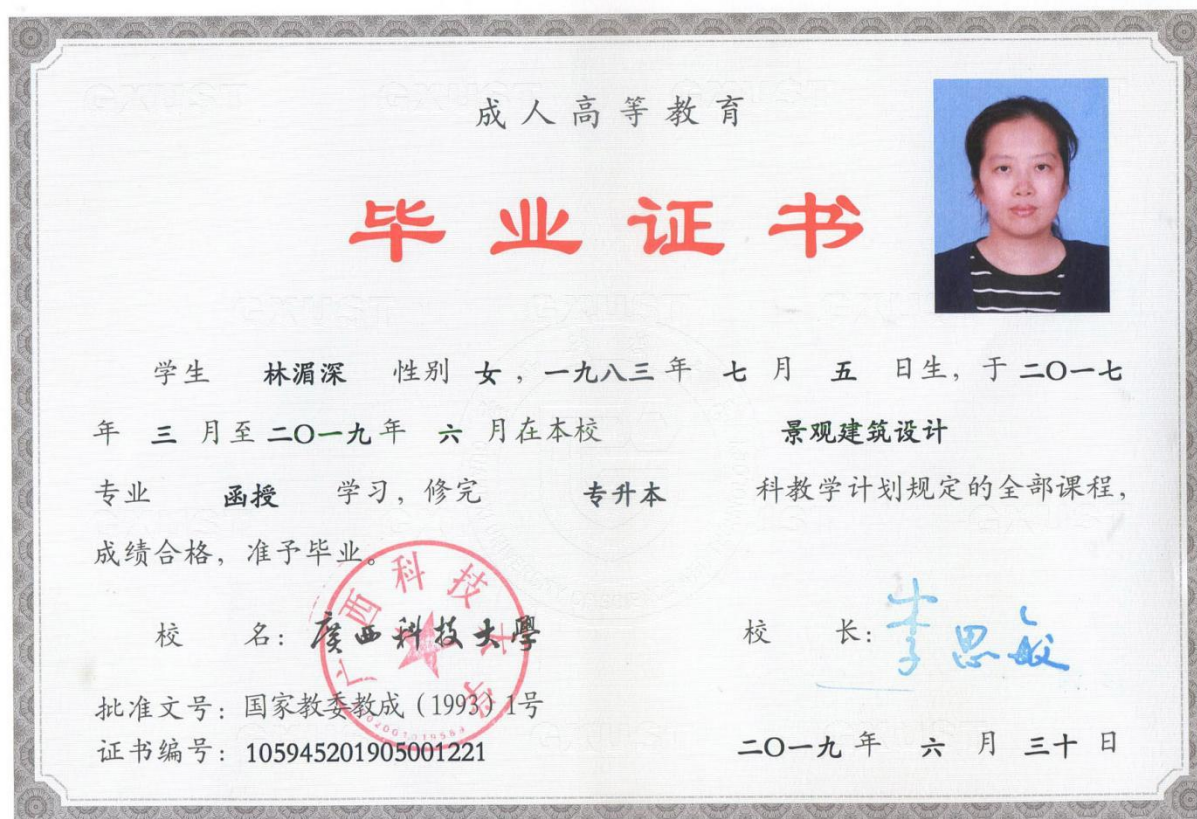 成人高等教育
毕业证书
学生 林湄深 性别 女，一九八三年 七 月 五 日生，于二〇一七
年 三 月至二〇一九年 六 月在本校 景观建筑设计
专业 函授 学习，修完 专升本 科教学计划规定的全部课程，
成绩合格，准予毕业。
校 名：廣西科技大學
广西科技大学
校 长：李思敏
批准文号：国家教委教成（1993）1号
证书编号：105945201905001221
二〇一九年 六 月 三十 日